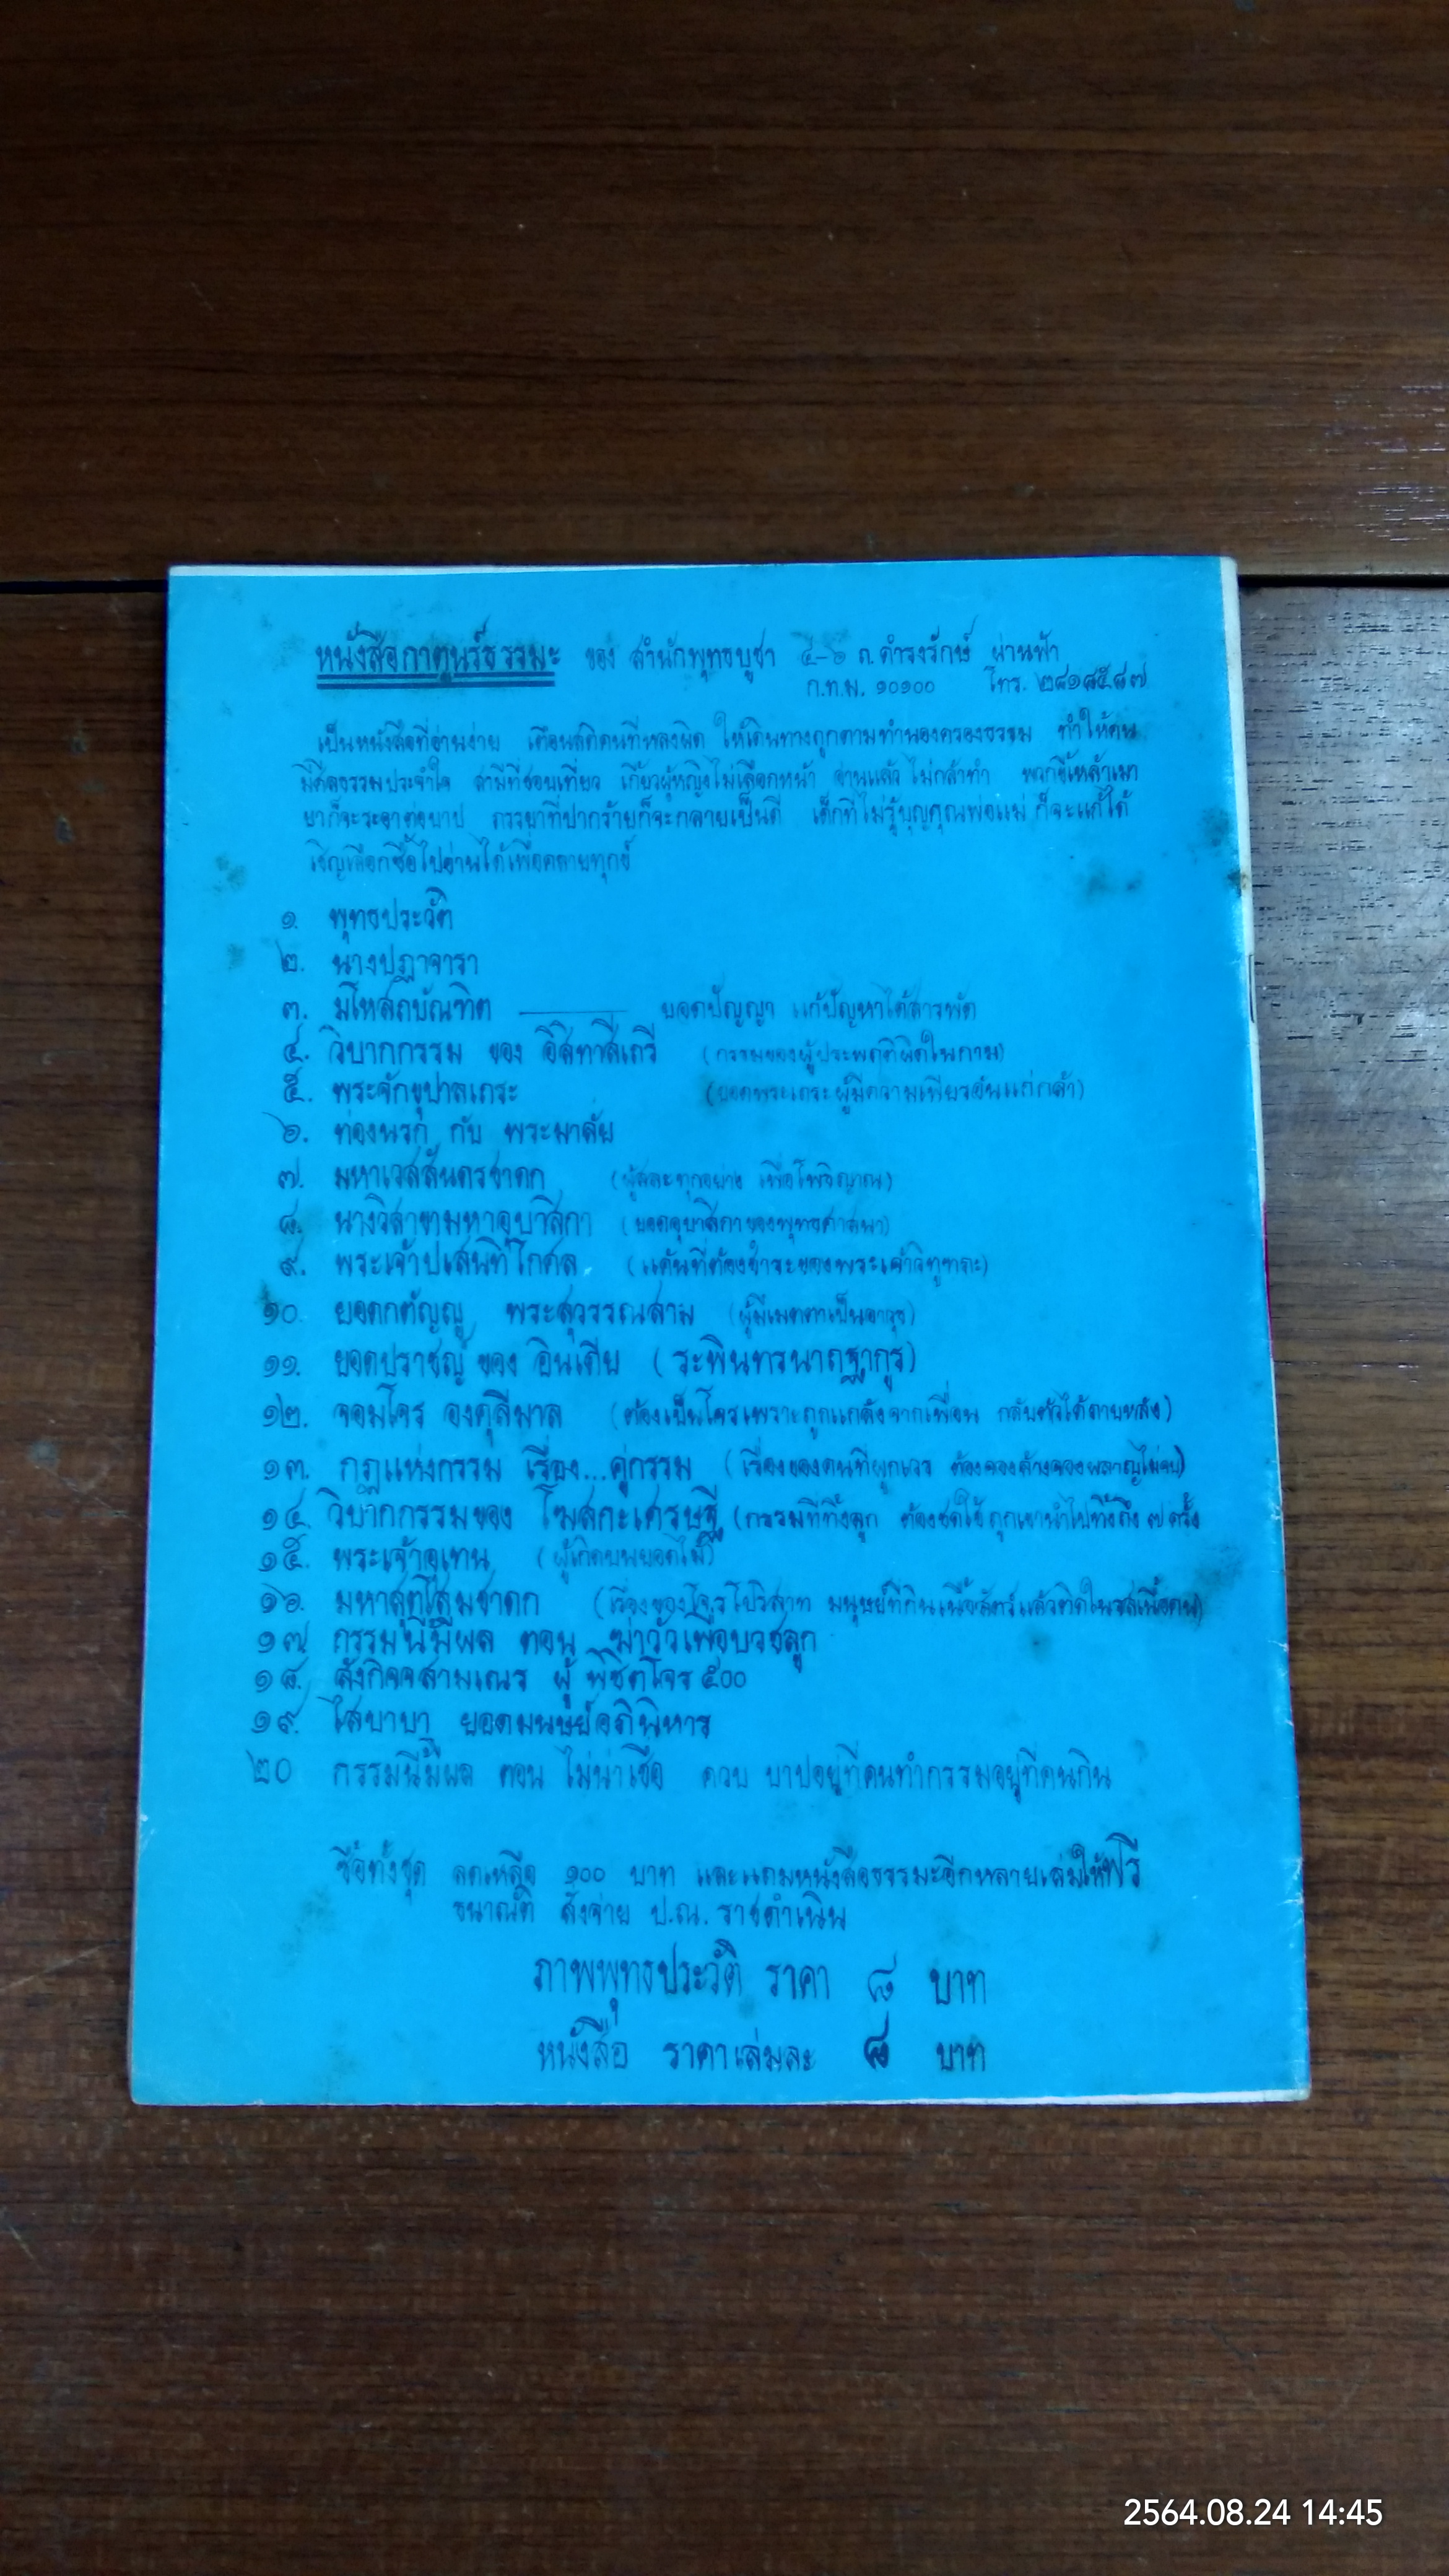 หนังสือการ์ตูนธรรมะ ของ สำนักพุทธบูชา ๔-๖ ถ.ดำรงรักษ์ ผ่านฟ้า
ก.ท.ม. ๑๐๑๐๐ โทร. ๒๘๑๘๕๘๗
เป็นหนังสือที่อ่านง่าย เตือนสติคนที่หลงผิด ให้เดินทางถูกตามทำนองครองธรรม ทำให้คน
มีศีลธรรมประจำใจ สามีที่ชอบเที่ยว เกี้ยวผู้หญิงไม่เลือกหน้า อ่านแล้ว ไม่กล้าทำ พวกขี้เหล้าเมา
ยาก็จะระอาต่อบาป ภรรยาที่ปากร้ายก็จะกลายเป็นดี เด็กที่ไม่รู้บุญคุณพ่อแม่ ก็จะแก้ได้
เชิญเลือกซื้อไปอ่านได้เพื่อคลายทุกข์
๑. พุทธประวัติ
๒. นางปฏาจารา
๓. มโหสถบัณฑิต ยอดปัญญา แก้ปัญหาได้สารพัด
๔. วิบากกรรม ของ อิสิทาสีเถรี (กรรมของผู้ประพฤติผิดในกาม)
๕. พระจักขุปาลเถระ (ยอดพระเถระผู้มีความเพียรอันแก่กล้า)
๖. ท่องนรก กับ พระมาลัย
๗. มหาเวสสันดรชาดก (ผู้สละทุกอย่าง เพื่อโพธิญาณ)
๘. นางวิสาขามหาอุบาสิกา (ยอดอุบาสิกาของพุทธศาสนา)
๙. พระเจ้าปเสนทิโกศล (แค้นที่ต้องชำระของพระเจ้าวิฑูฑภะ)
๑๐. ยอดกตัญญู พระสุวรรณสาม (ผู้มีเมตตาเป็นอาวุธ)
๑๑. ยอดปราชญ์ ของ อินเดีย (ระพินทรนาถฐากูร)
๑๒. จอมโจร องคุลีมาล (ต้องเป็นโจรเพราะถูกแกล้งจากเพื่อน กลับตัวได้ภายหลัง)
๑๓. กฎแห่งกรรม เรื่อง...คู่กรรม (เรื่องของคนที่ผูกเวร ต้องจองล้างจองผลาญไม่จบ)
๑๔. วิบากกรรมของ โฆสกะเศรษฐี (กรรมที่ทิ้งลูก ต้องชดใช้ ถูกเขานำไปทิ้งถึง ๗ ครั้ง
๑๕. พระเจ้าอุเทน (ผู้เกิดบนยอดไม้)
๑๖. มหาสุตโสมชาดก (เรื่องของโจรโปริสาท มนุษย์ที่กินเนื้อสัตว์แล้วติดในรสเนื้อคน)
๑๗ กรรมนี้มีผล ตอน ฆ่าวัวเพื่อบวชลูก
๑๘. สังกิจจสามเณร ผู้ พิชิตโจร ๕๐๐
๑๙. ไสบาบา ยอดมนุษย์อภินิหาร
๒๐ กรรมนี้มีผล ตอน ไม่น่าเชื่อ ควบ บาปอยู่ที่คนทำกรรมอยู่ที่คนกิน
ซื้อทั้งชุด ลดเหลือ ๑๐๐ บาท และแถมหนังสือธรรมะอีกหลายเล่มให้ฟรี
ธนาณัติ สั่งจ่าย ป.ณ. ราชดำเนิน
ภาพพุทธประวัติ ราคา ๘ บาท
หนังสือ ราคาเล่มละ ๘ บาท
2564.08.24 14:45